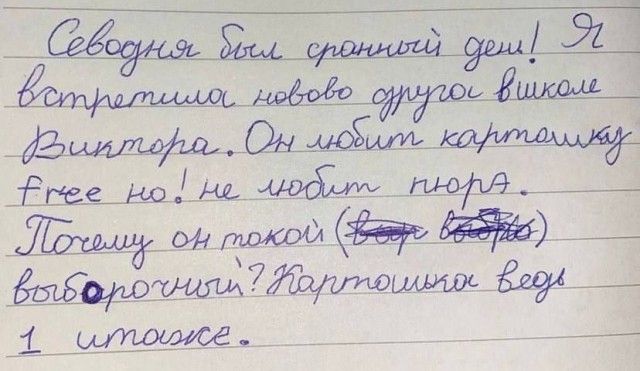 Севодня был сранный ден! Я
встретила новово друга вшколе
Виктора. Он любит картошку
free но! не любит пюрэ.
Почему он такой (
выборочный? Картошка ведь
1 итаже.